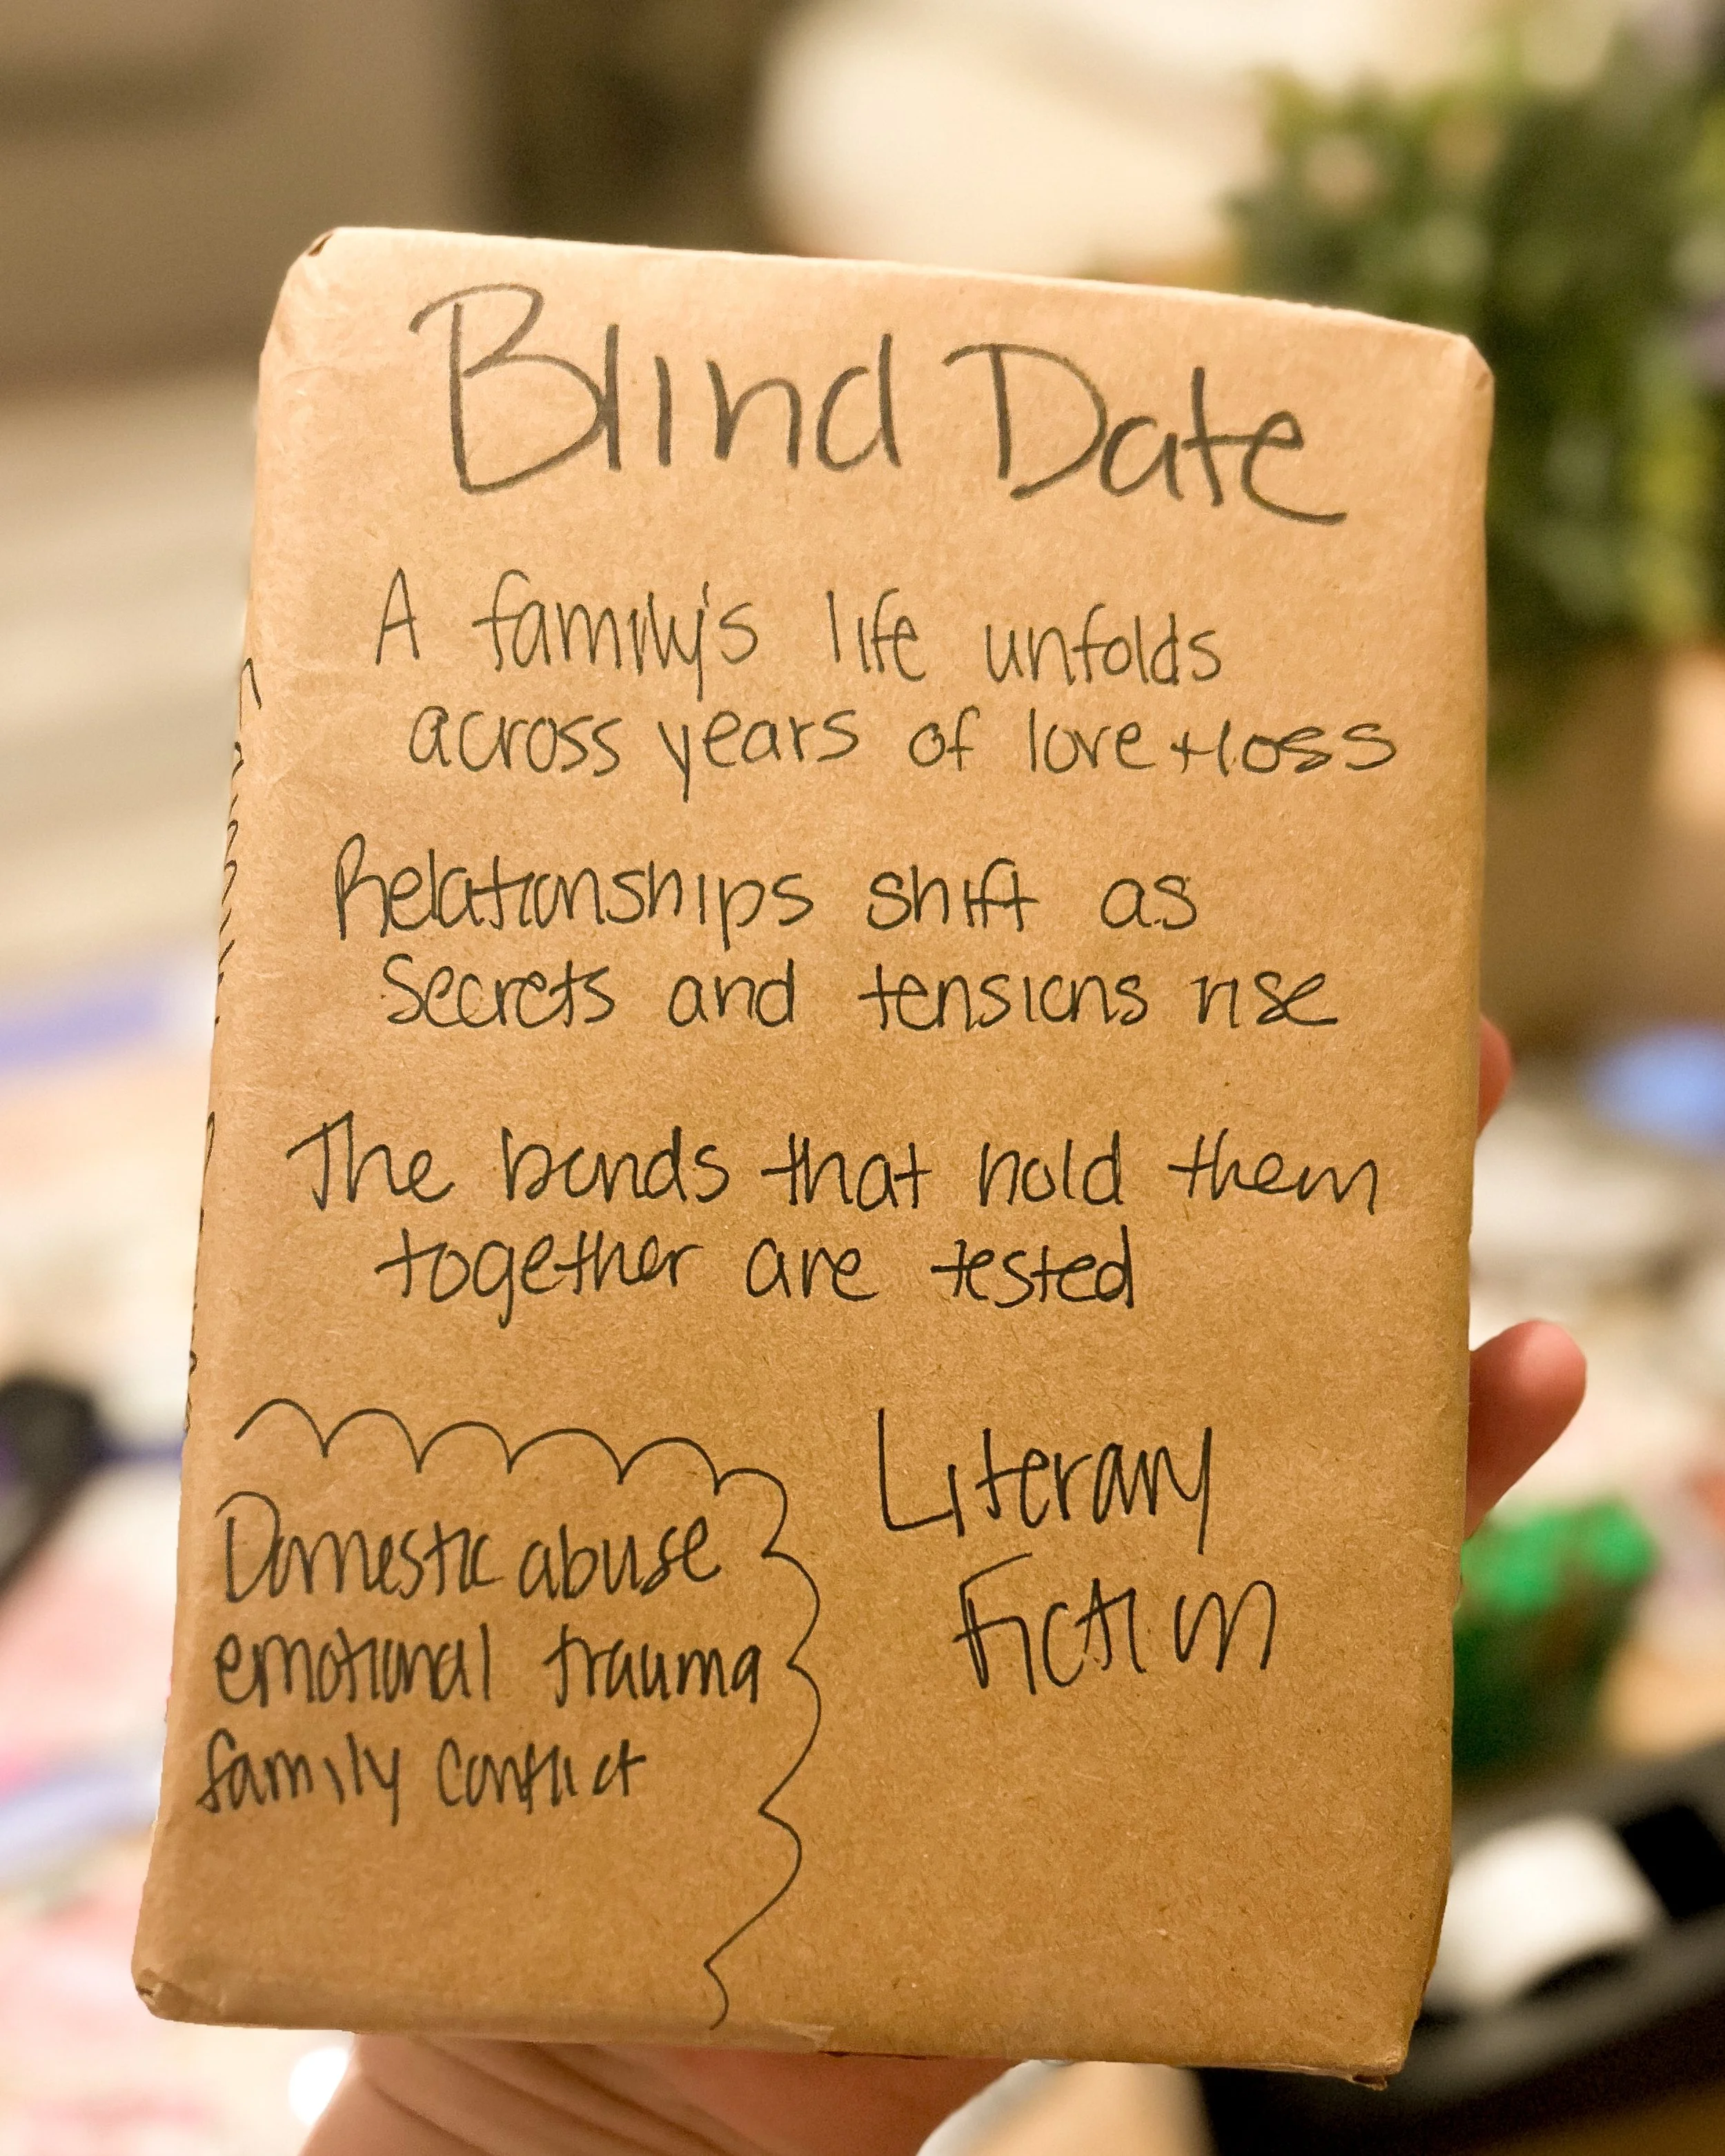 Blind Date
A family's life unfolds
across years of love + loss
Relationships shift as
Secrets and tensions rise
The bonds that hold them
together are tested
Domestic abuse
emotional trauma
family conflict
Literary
Fiction